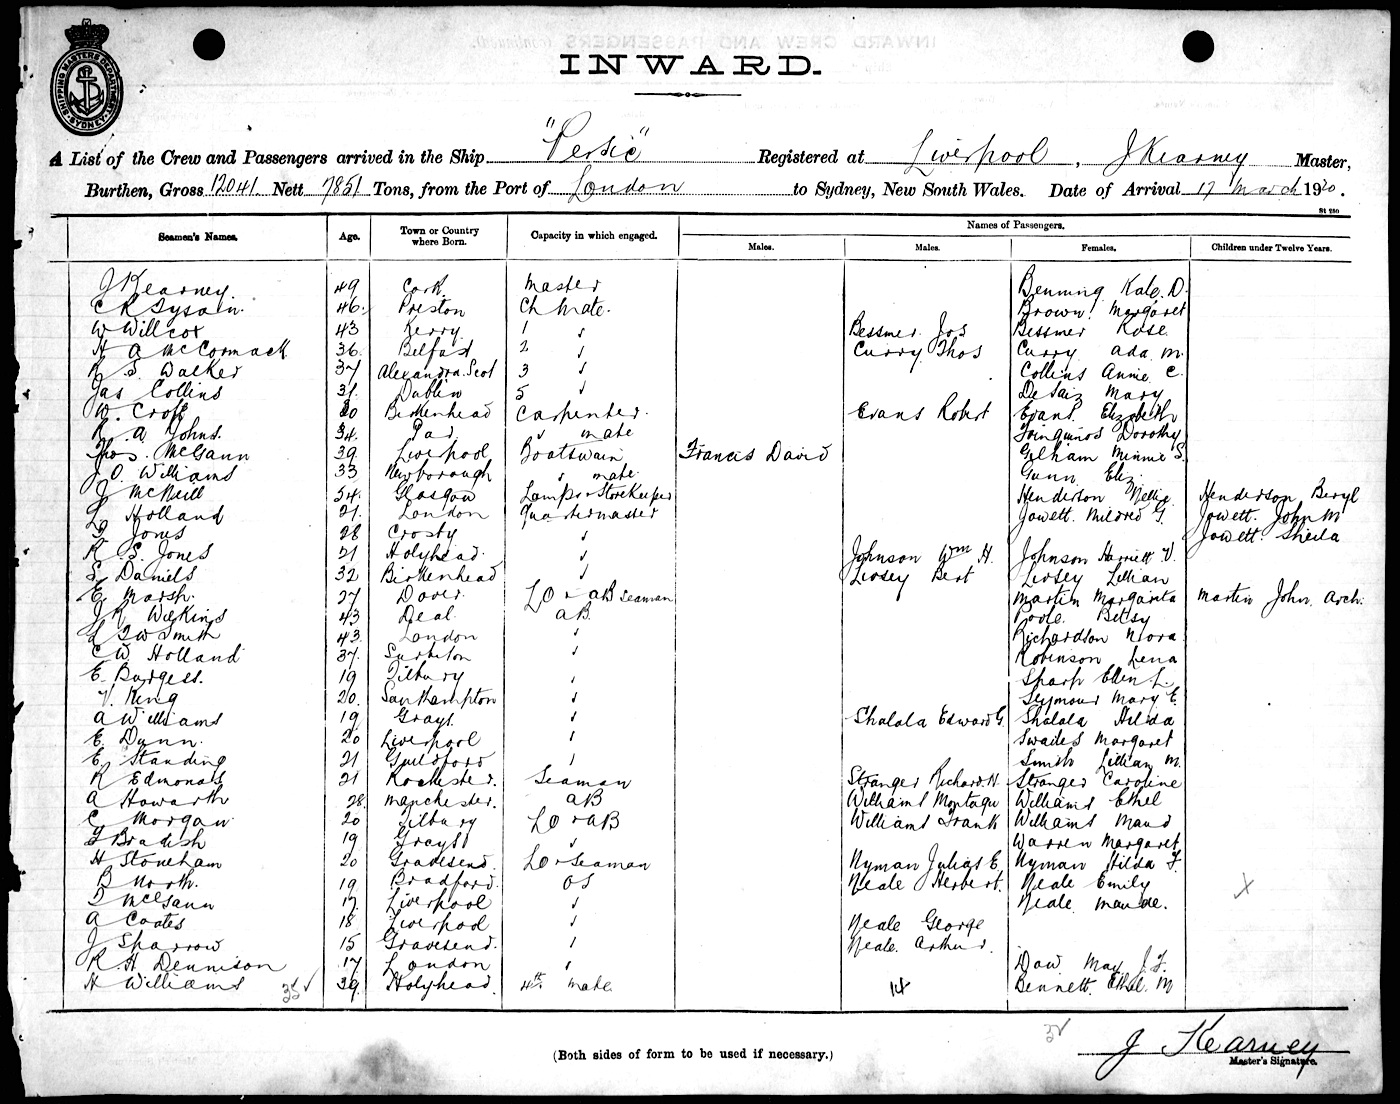 INWARD.
SHIPPING MASTERS DEPARTMENT SYDNEY
A List of the Crew and Passengers arrived in the Ship "Persic" Registered at Liverpool, J Kearney Master,
Burthen, Gross 12041 Nett 7851 Tons, from the Port of London to Sydney, New South Wales. Date of Arrival 17 March 1920.
St 250
Seamen's Names. Age. Town or Country where Born. Capacity in which engaged. Names of Passengers.
Males. Males. Females. Children under Twelve Years.
J Kearney 49 Cork Master Benning Kate. D.
46. Preston Ch Mate. Brown. Margaret
W Willcox 43 Kerry 1 " Bessmer Jos Bessmer Rose
H A McCormack 36. Belfast 2 " Curry Thos Curry Ada M.
R S. Walker 37 Alexandra. Scot 3 " Collins Annie C.
Jas Collins 31. Dublin 5 " De Saiz Mary
W. Croft 20 Birkenhead Carpenter. Evans Robert Evans. Elizabeth
R. A Johns. 34. " mate Dorothy
Thos. McGann 39 Liverpool Boatswain Francis David Gelham Minnie S.
J O. Williams 33 Newborough " mate Gunn Eliz
J McNeill 54. Glasgow Lamps & Storekeeper Henderson Nellie Henderson Beryl
L Holland 21. London Quartermaster Jowett. Mildred G. Jowett. John M
Jones 28 Crosby " Jowett. Sheila
R. S. Jones 21 Holyhead. " Johnson Wm H. Johnson Harriett V.
S. Daniels 32 Birkenhead " Livsey Bert Livsey Lillian
E. Marsh. 27 Dover. AB Seaman Martin Margarita Martin John Arch.
J R Wilkins 43 Deal AB. Poole. Betsy
Smith 43. London " Richardson Nora
C W Holland 37. Surbiton " Robinson Lena
E. Burgess. 19 Tilbury " Sharp Ellen L.
V. King 20. Southampton " Seymour Mary E.
A Williams 19 Grays " Shalala Edward G. Shalala Hilda
E. Dunn. 20 Liverpool " Swailes Margaret
E. Standing 21 Guildford " Smith Lillian M.
R Edmonds 21 Rochester. Seaman Stranger Richard. H. Stranger Caroline
A Howarth 28. Manchester. AB Williams Montagu Williams Ethel
C Morgan 20 Tilbury AB Williams Frank Williams Maud
Bradish 19 Grays " Warren Margaret
H Stoneham 20 Gravesend. Seaman Nyman Julias E. Nyman Hilda F.
B North. 19. Bradford. OS Neale Herbert. Neale Emily X
D McGann 17 Liverpool " Neale Maude.
A Coates 18. Liverpool " Neale George
J Sparrow 15 Gravesend. " Neale. Arthur.
R. H. Dennison 17 London " Daw May J. F.
H Williams 35 39. Holyhead. 4th mate 14 Bennett. Ethel. M
(Both sides of form to be used if necessary.)
J Kearney
Master's Signature.